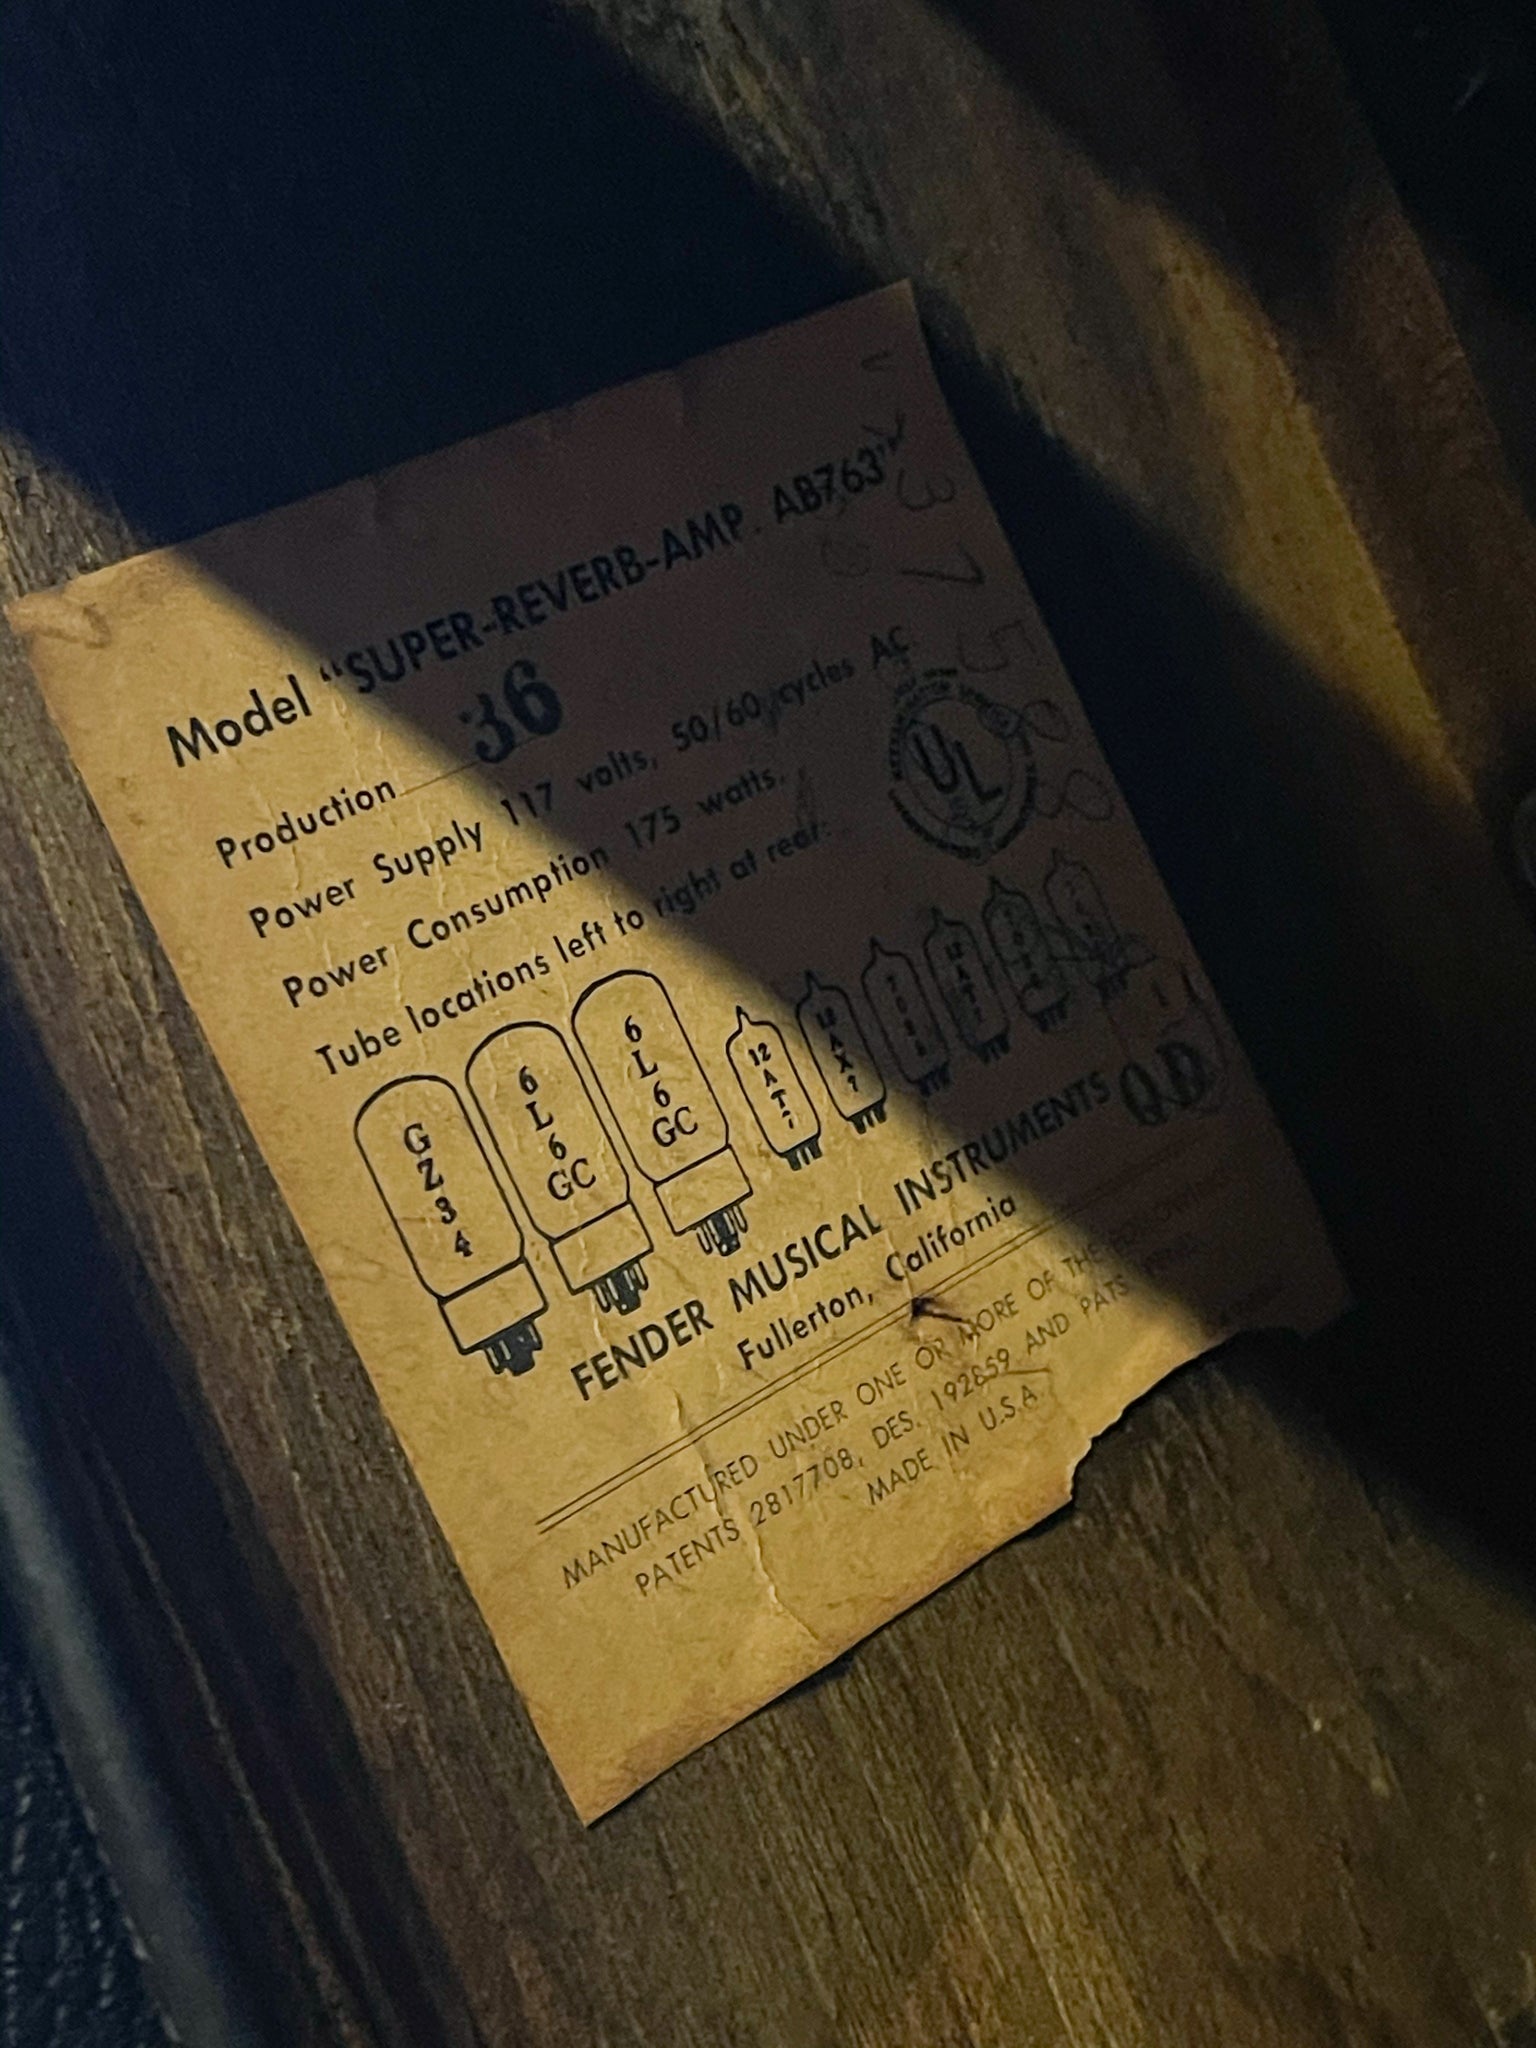 Model "SUPER-REVERB-AMP. AB763"
Production 36
Power Supply 117 volts, 50/60 cycles AC
Power Consumption 175 watts.
Tube locations left to right at rear:
UL
GZ34 6L6GC 6L6GC 12AT7 12AX7
QD
FENDER MUSICAL INSTRUMENTS
Fullerton, California
MANUFACTURED UNDER ONE OR MORE OF THE FOLLOWING
PATENTS 2817708, DES. 192859 AND PATS
MADE IN U.S.A